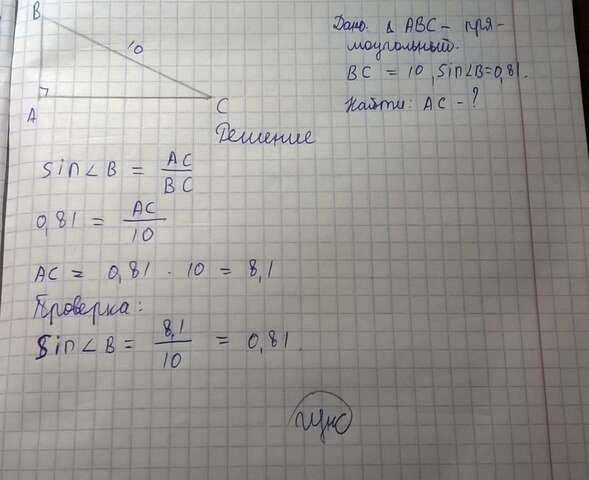 B
10
A
C
Дано: Δ ABC - пря-
моугольный.
BC = 10, sin∠B=0,81.
Найти: AC - ?
Решение
sin∠B = AC/BC
0,81 = AC/10
AC = 0,81 · 10 = 8,1
Проверка:
sin∠B = 8,1/10 = 0,81.